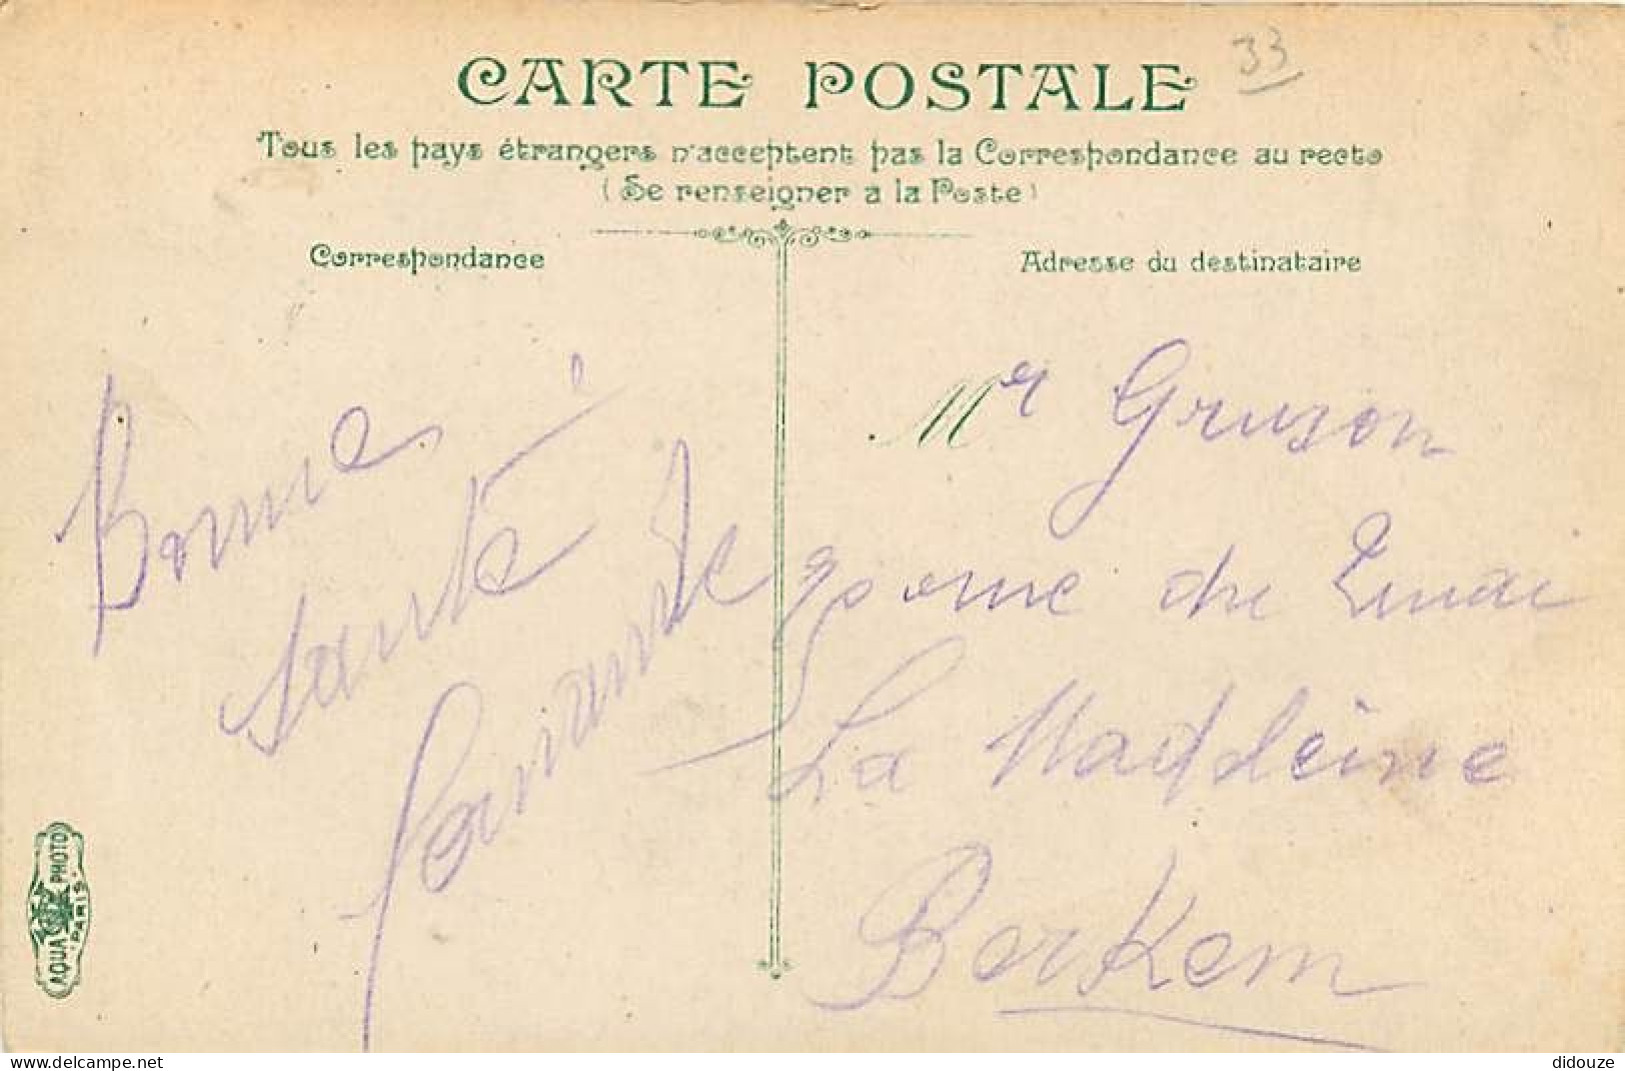 33
CARTE POSTALE
Tous les pays étrangers n'acceptent pas la Correspondance au recto
(Se renseigner a la Poste)
Correspondance
Bonne
santé
Adresse du destinataire
Mr Gruson
du
La Madeleine
Berkem
AQUA PHOTO
PARIS
delcampe.net
didouze